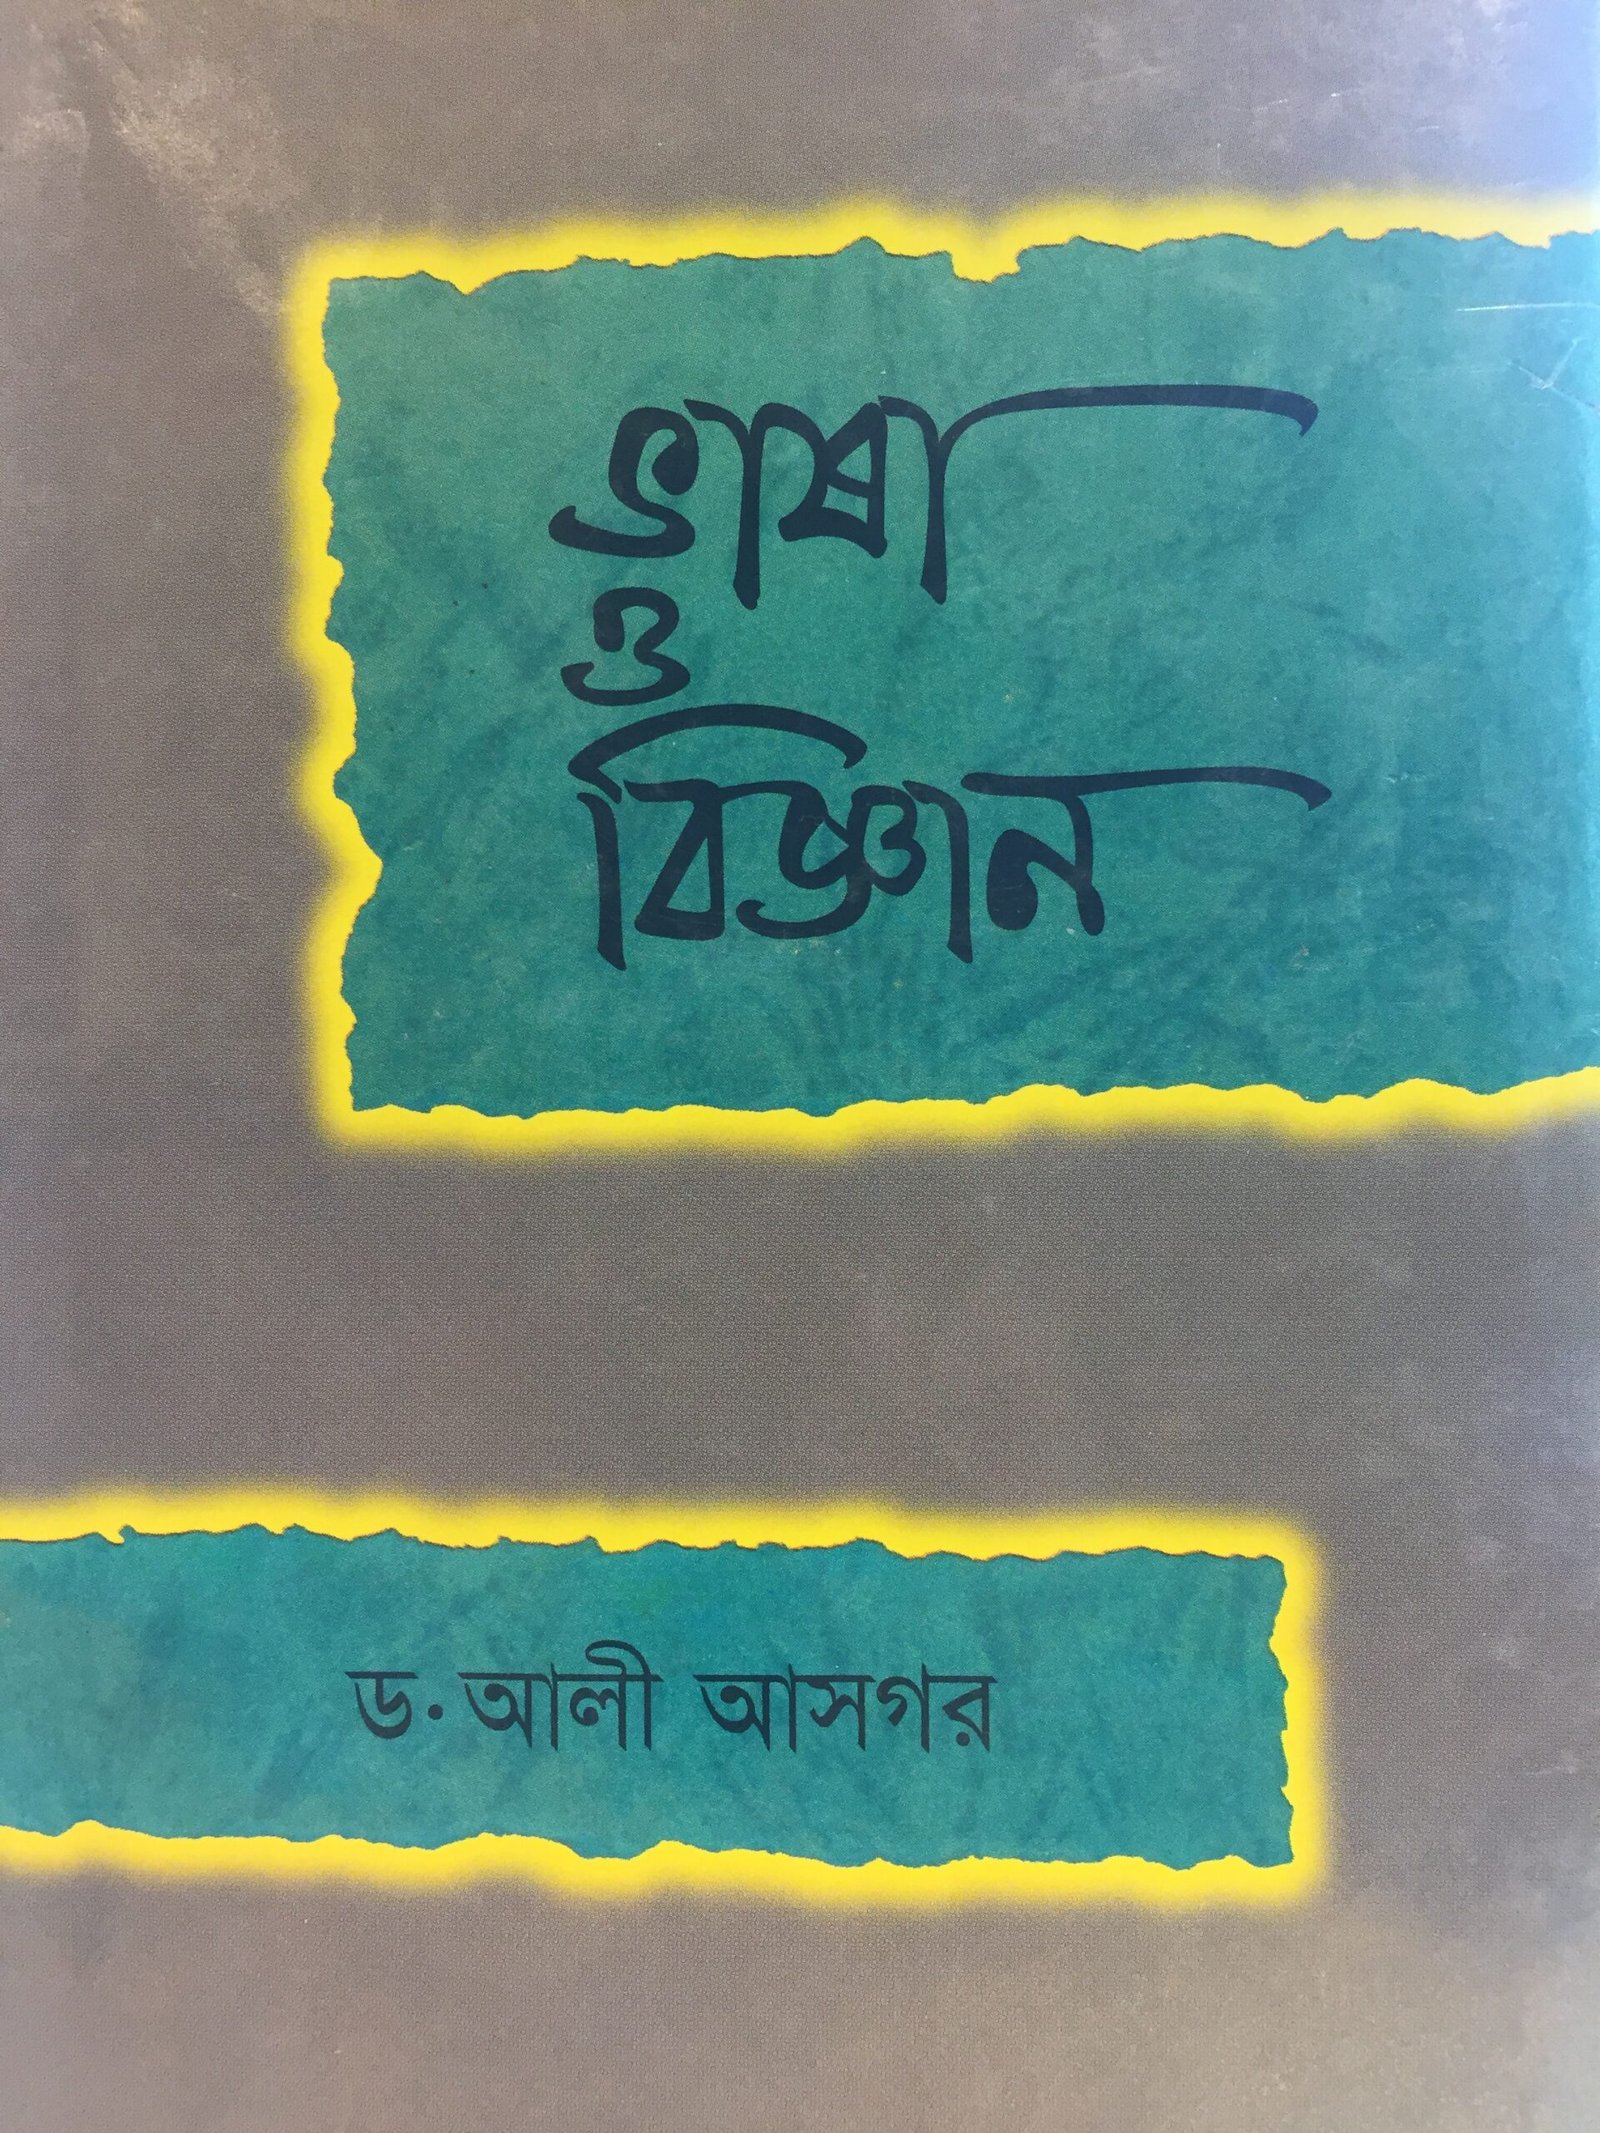 ভাষা
ও
বিজ্ঞান
ড. আলী আসগর